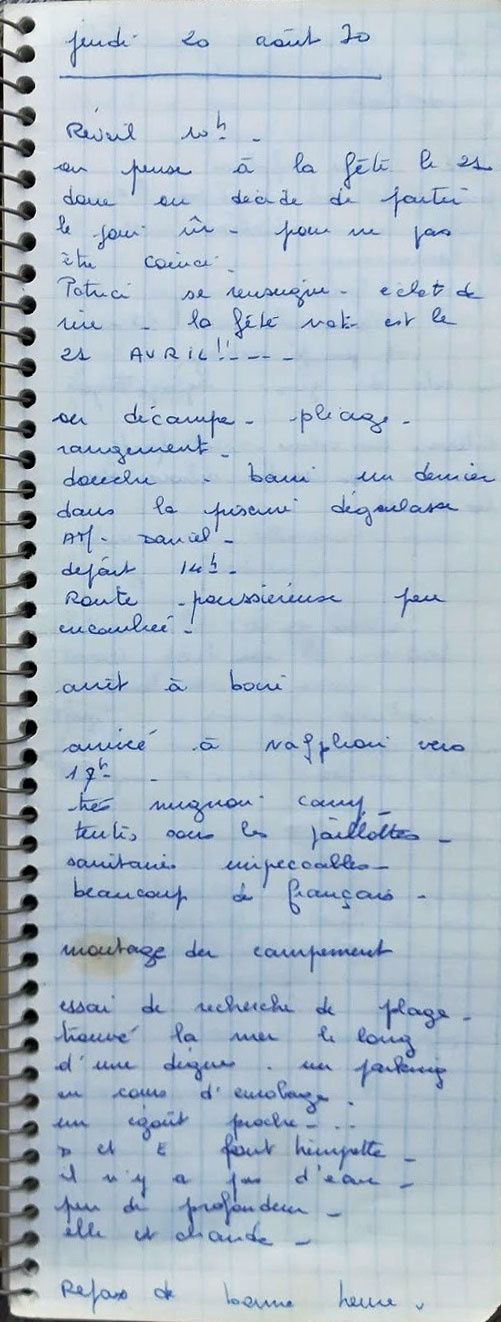 jeudi 20 août 70
Réveil 10h -
on pense à la fête le 21
donc on décide de partir
le jour - pour ne pas
être coincé -
se renseigne - éclat de
rire - la fête est le
21 AVRIL!! - - -
on décampe - pliage -
rangement -
douche - bain un dernier
dans la piscine dégeulasse
Daniel -
départ 14h -
Route - poussiéreuse peu
encombrée -
arrêt à
arrivée à vers
17h -
très mignon camp -
tentes sous les paillottes -
sanitaires impeccables -
beaucoup de français -
montage du campement
essai de recherche de plage -
trouvé la mer le long
d'une digue . un parking
en cours d'enrobage .
un égoût proche - . .
D et E font trempette -
il n'y a pas d'eau -
peu de profondeur -
elle est chaude -
Repas de bonne heure .